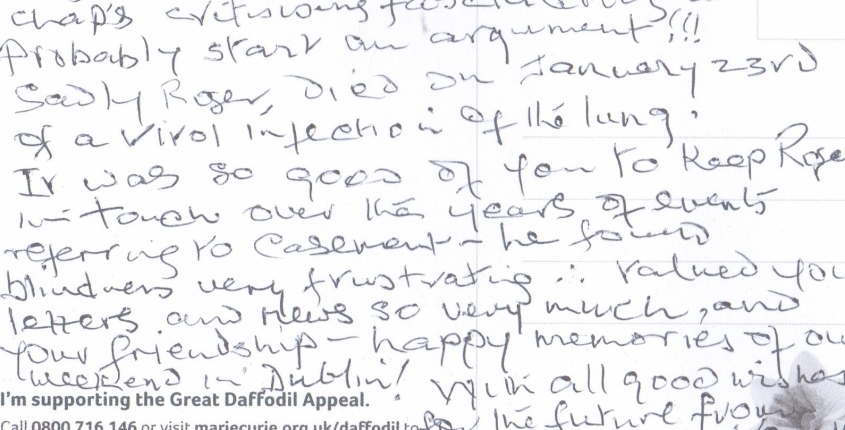 chap's critisising
Probably start an argument!!!
Sadly Roger, Died on January 23rd
of a viral infection of the lung.
It was so good of you to keep Roge
in-touch over the years of events
referring to Casement - he found
blindness very frustrating ∴ valued you
letters and news so very much, and
your friendship - happy memories of ou
weekend in Dublin! With all good wishes
I'm supporting the Great Daffodil Appeal. for the future from
Call 0800 716 146 or visit mariecurie.org.uk/daffodil to